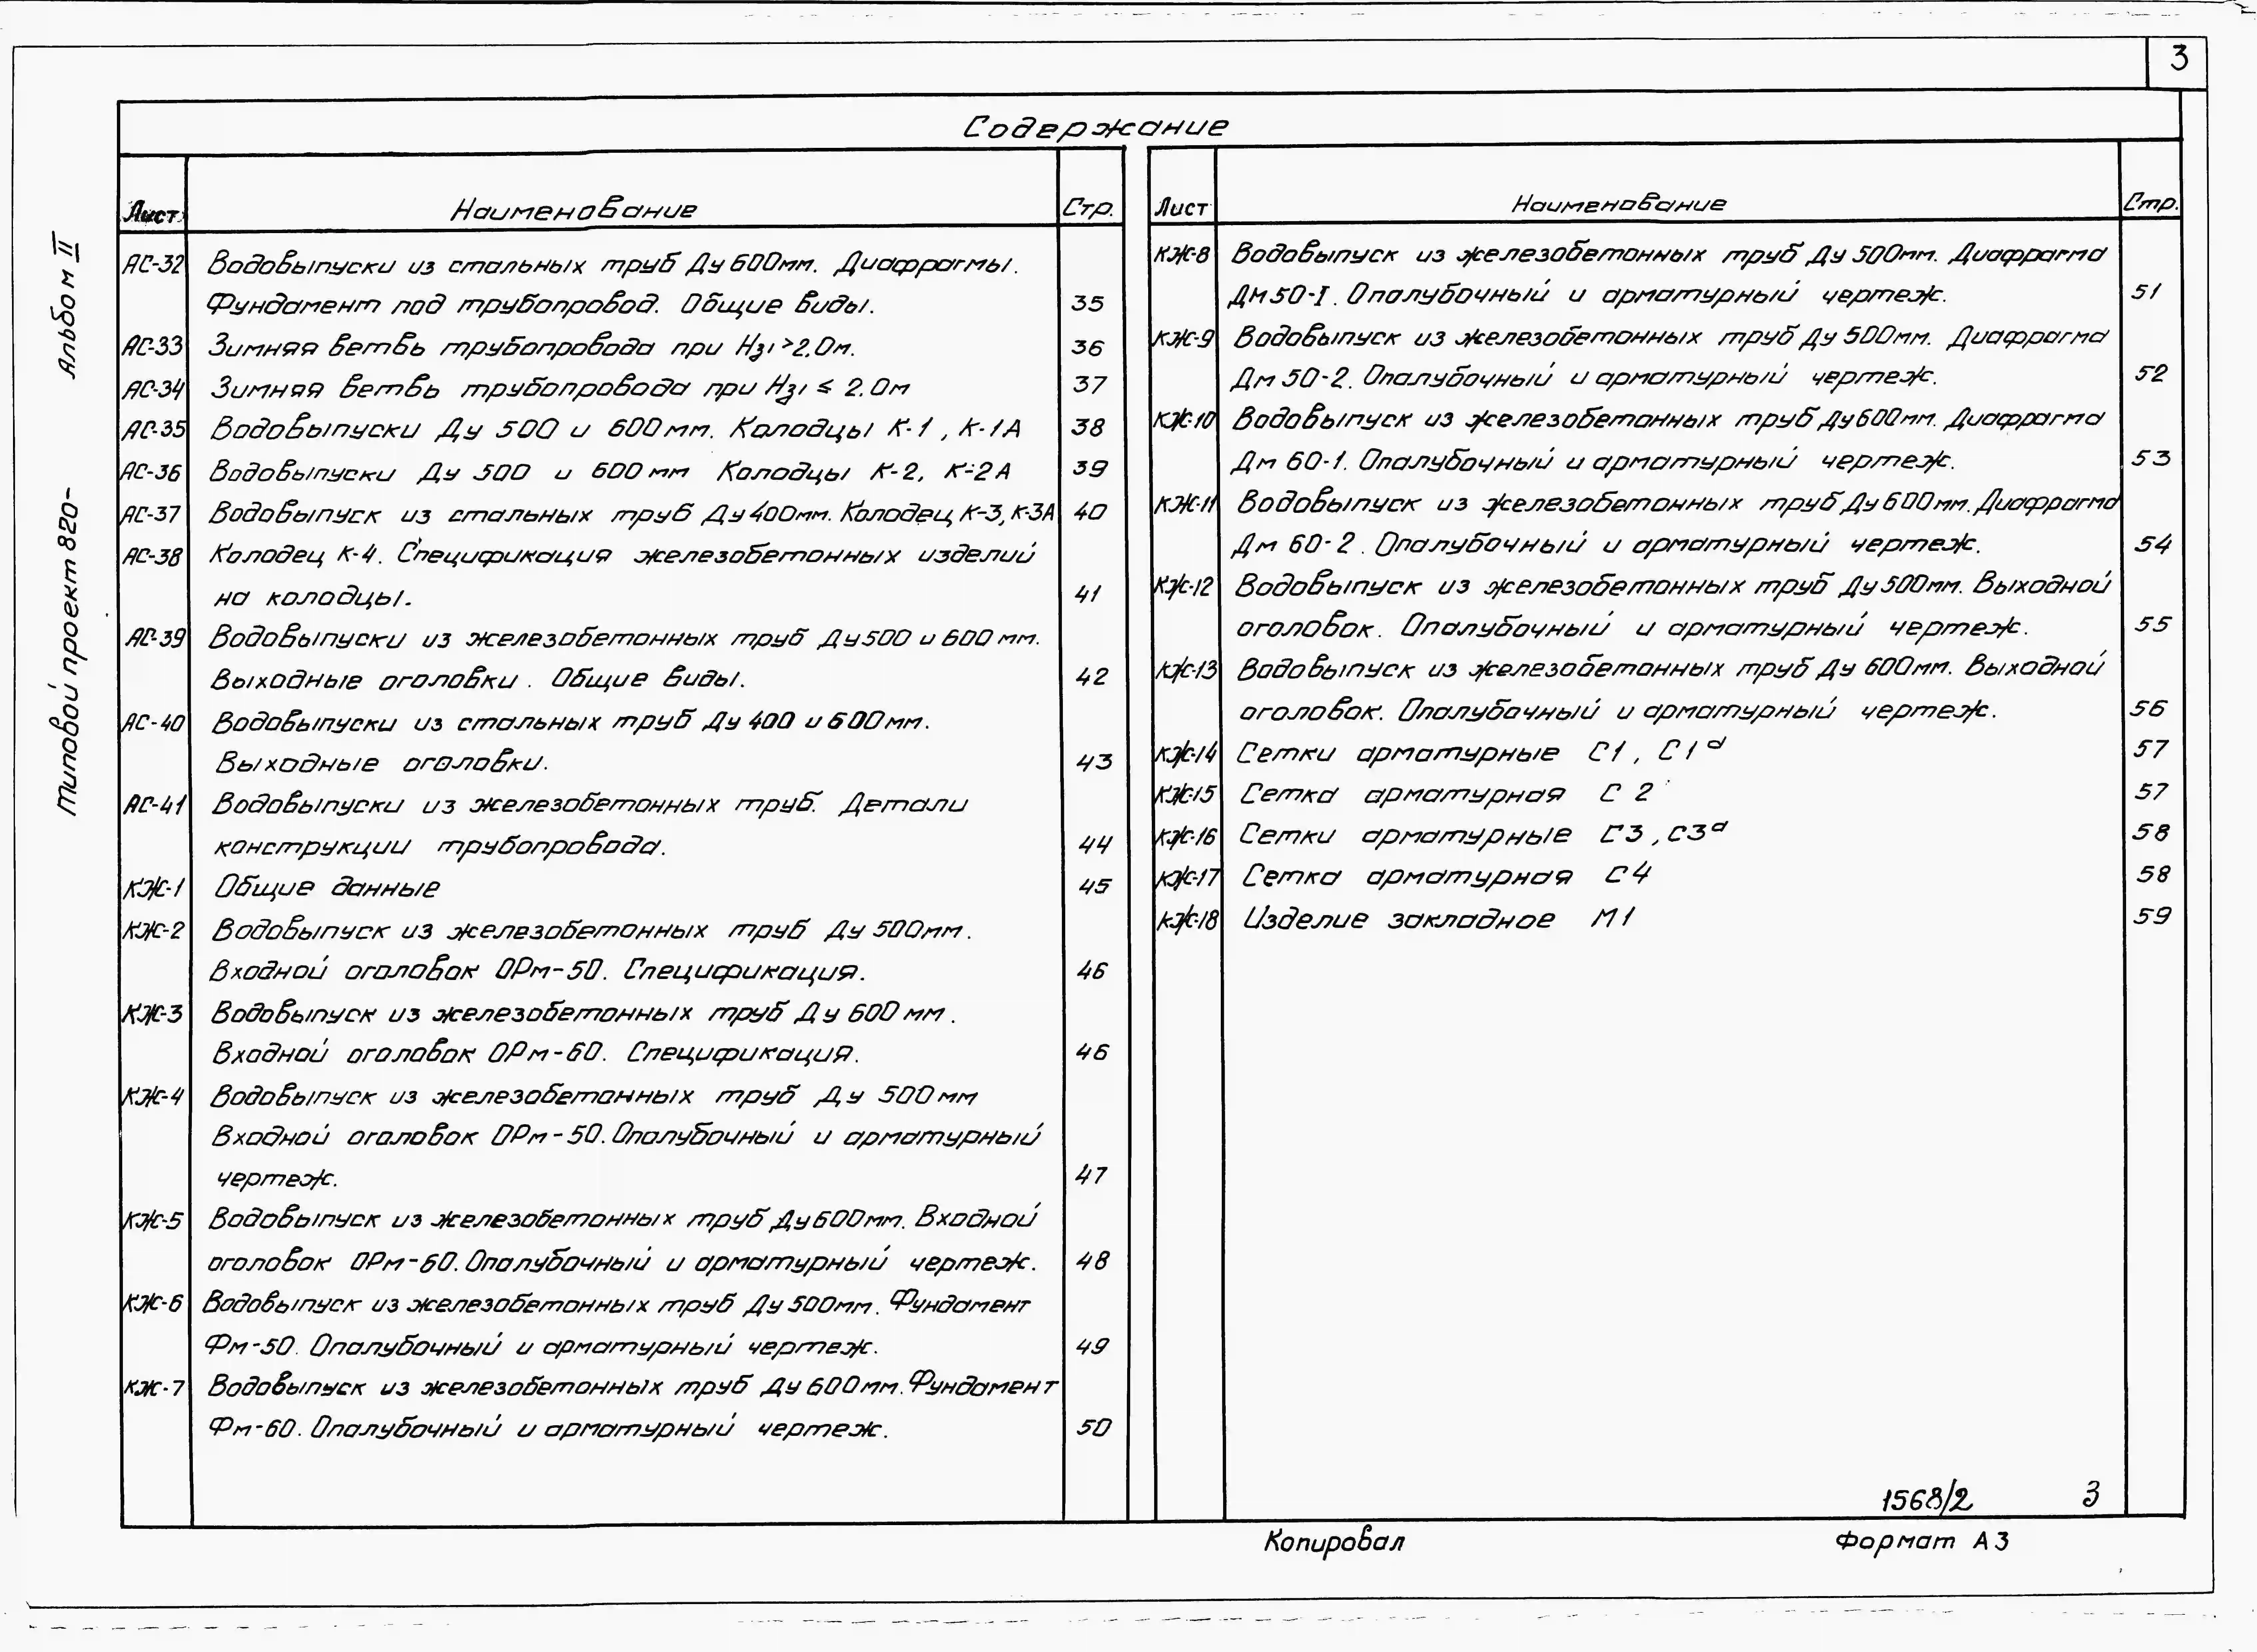 3
Содержание
Лист Наименование Стр.
АС-32 Водовыпуски из стальных труб Ду 600мм. Диафрагмы.
Фундамент под трубопровод. Общие виды. 35
АС-33 Зимняя ветвь трубопровода при Нз1 >2,0м. 36
АС-34 Зимняя ветвь трубопровода при Нз1 ≤ 2.0м 37
АС-35 Водовыпуски Ду 500 и 600мм. Колодцы К-1, К-1А 38
АС-36 Водовыпуски Ду 500 и 600 мм Колодцы К-2, К-2А 39
АС-37 Водовыпуск из стальных труб Ду400мм. Колодец К-3, К-3А 40
АС-38 Колодец К-4. Спецификация железобетонных изделий
на колодцы. 41
АС-39 Водовыпуски из железобетонных труб Ду500 и 600 мм.
Выходные оголовки. Общие виды. 42
АС-40 Водовыпуски из стальных труб Ду 400 и 600мм.
Выходные оголовки. 43
АС-41 Водовыпуски из железобетонных труб. Детали
конструкции трубопровода. 44
КЖ-1 Общие данные 45
КЖ-2 Водовыпуск из железобетонных труб Ду 500мм.
Входной оголовок ОРм-50. Спецификация. 46
КЖ-3 Водовыпуск из железобетонных труб Ду 600 мм.
Входной оголовок ОРм-60. Спецификация. 46
КЖ-4 Водовыпуск из железобетонных труб Ду 500мм
Входной оголовок ОРм-50. Опалубочный и арматурный
чертеж. 47
КЖ-5 Водовыпуск из железобетонных труб Ду600мм. Входной
оголовок ОРм-60. Опалубочный и арматурный чертеж. 48
КЖ-6 Водовыпуск из железобетонных труб Ду 500мм. Фундамент
Фм-50. Опалубочный и арматурный чертеж. 49
КЖ-7 Водовыпуск из железобетонных труб Ду 600мм. Фундамент
Фм-60. Опалубочный и арматурный чертеж. 50
Лист Наименование Стр.
КЖ-8 Водовыпуск из железобетонных труб Ду 500мм. Диафрагма
ДМ50-I. Опалубочный и арматурный чертеж. 51
КЖ-9 Водовыпуск из железобетонных труб Ду 500мм. Диафрагма
Дм 50-2. Опалубочный и арматурный чертеж. 52
КЖ-10 Водовыпуск из железобетонных труб Ду600мм. Диафрагма
Дм 60-1. Опалубочный и арматурный чертеж. 53
КЖ-11 Водовыпуск из железобетонных труб Ду 600мм. Диафрагма
Дм 60-2. Опалубочный и арматурный чертеж. 54
КЖ-12 Водовыпуск из железобетонных труб Ду500мм. Выходной
оголовок. Опалубочный и арматурный чертеж. 55
КЖ-13 Водовыпуск из железобетонных труб Ду 600мм. Выходной
оголовок. Опалубочный и арматурный чертеж. 56
КЖ-14 Сетки арматурные С1, С1ᵃ 57
КЖ-15 Сетка арматурная С 2 57
КЖ-16 Сетки арматурные С3, С3ᵃ 58
КЖ-17 Сетка арматурная С4 58
КЖ-18 Изделие закладное М1 59
1568/2 3
Копировал Формат А3
Типовой проект 820- Альбом II